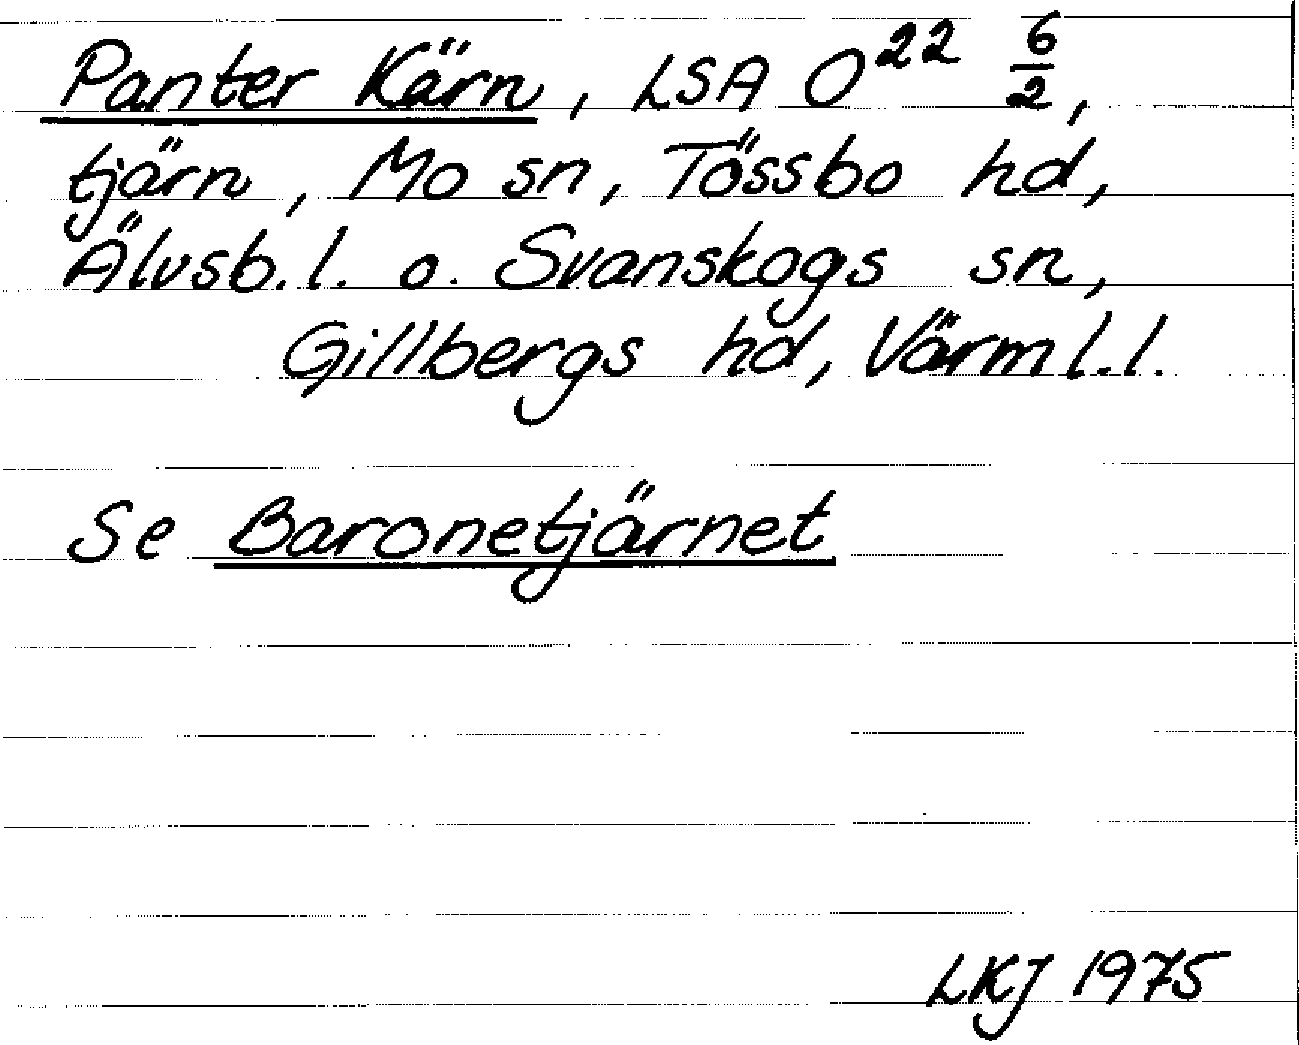 Panter Kärn, LSA O²² 6/2,
tjärn, Mo sn, Tössbo hd,
Älvsb. l. o. Svanskogs sn,
Gillbergs hd, Värml. l.
Se Baronetjärnet
LKJ 1975